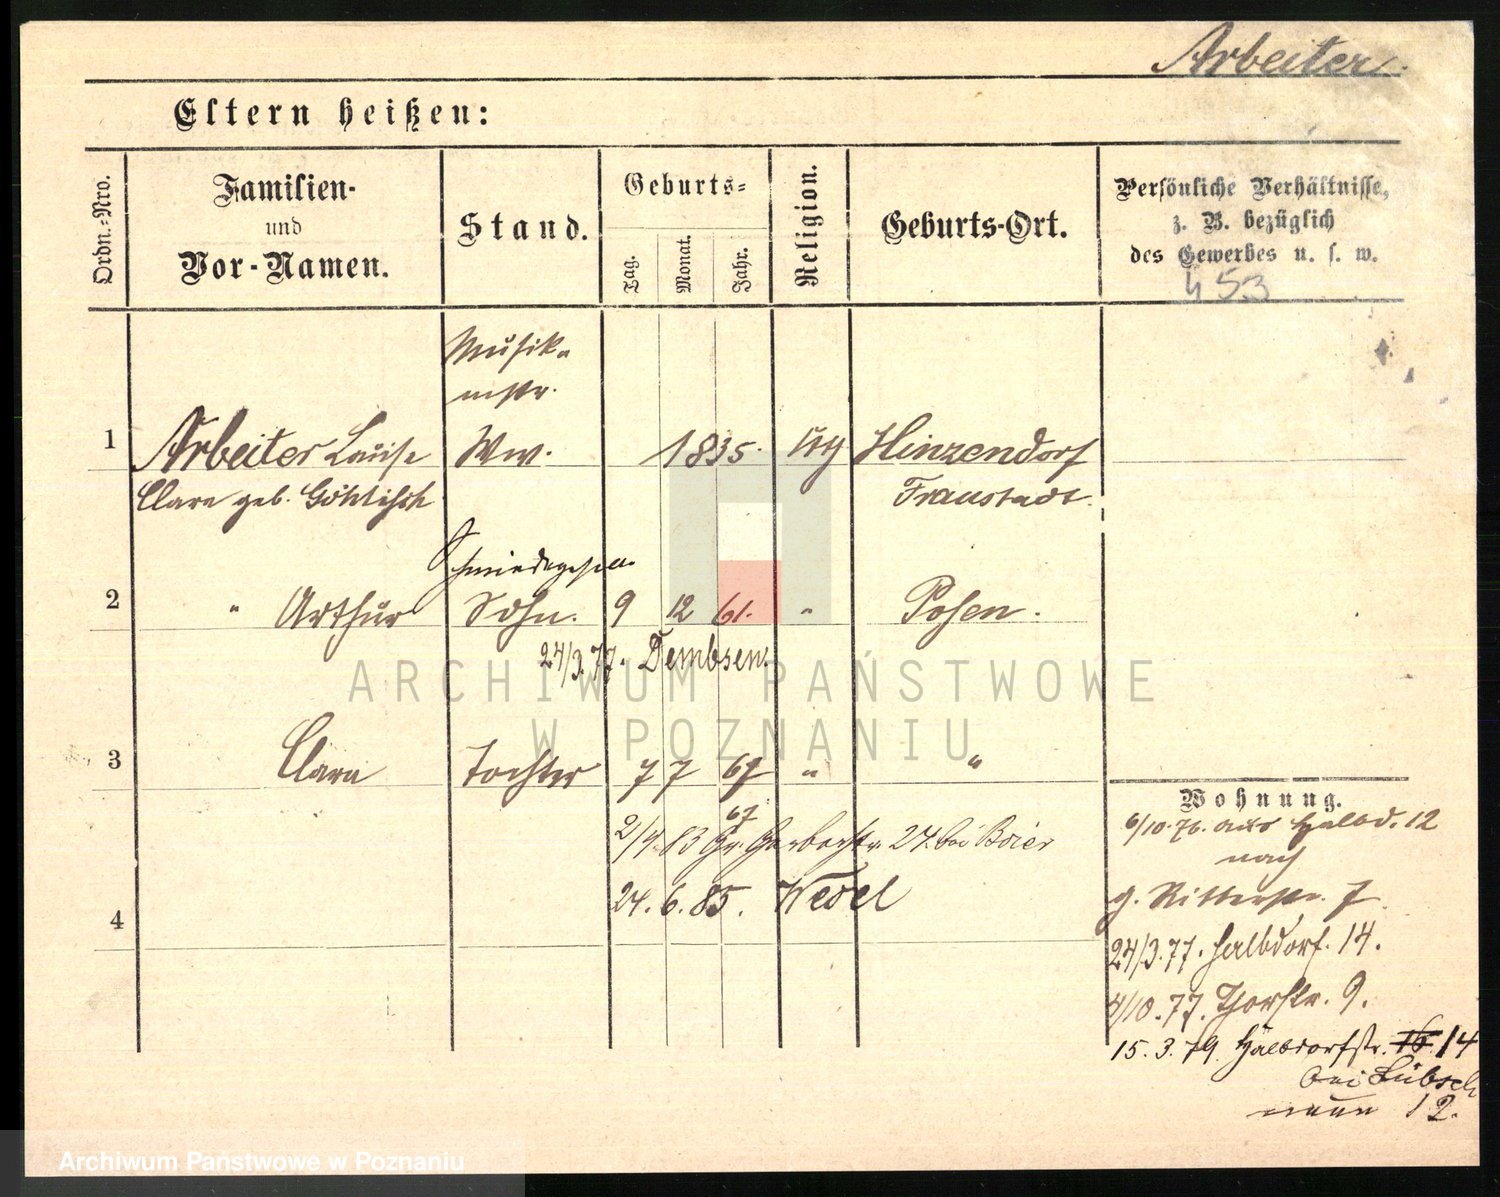 Arbeiter.
Eltern heißen:
Ordn.-Nro.
Familien-
und
Vor-Namen.
Stand.
Geburts-
Tag.
Monat.
Jahr.
Religion.
Geburts-Ort.
Persönliche Verhältnisse,
z. B. bezüglich
des Gewerbes u. s. w.
453
Musik-
mstr.
1 Arbeiter Louise Ww. 1835. Hinzendorf
Clara geb. Fraustadt.
Schmiedeges.
2 " Arthur Sohn. 9 12 61. " Posen.
24/3.77. Dembsen.
3 Clara Tochter 7 7 67 " "
67
2/4.83 Gr. Gerberstr. 27. bei Beier
4 24. 6. 85. Wesel
Wohnung.
6/10.76. aus Halbd. 12
nach
g. Ritterstr. 7
24/3.77. Halbdorf. 14.
4/10.77. Thorstr. 9.
15.3.79. Halbdorfstr. 16 14
bei Lübsch
neue 12.
ARCHIWUM PAŃSTWOWE
W POZNANIU
Archiwum Państwowe w Poznaniu